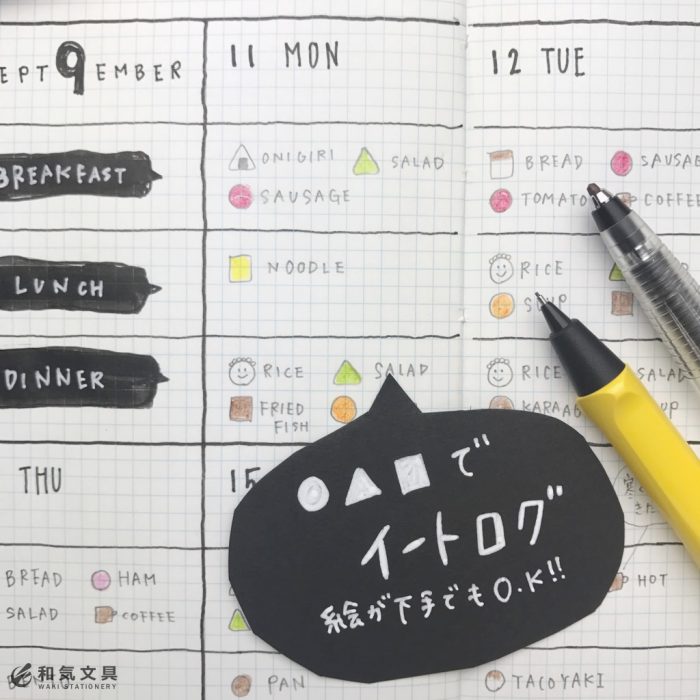 SEPT9EMBER
11 MON
12 TUE
BREAKFAST
ONIGIRI
SALAD
SAUSAGE
BREAD
SAUSAGE
TOMATO
COFFEE
LUNCH
NOODLE
RICE
SOUP
DINNER
RICE
SALAD
FRIED
FISH
RICE
SALAD
KARAAG
UP
THU
15
BREAD
HAM
SALAD
COFFEE
HOT
○△□で
イートログ
絵が下手でもO.K!!
和気文具
WAKI STATIONERY
PAN
TACOYAKI